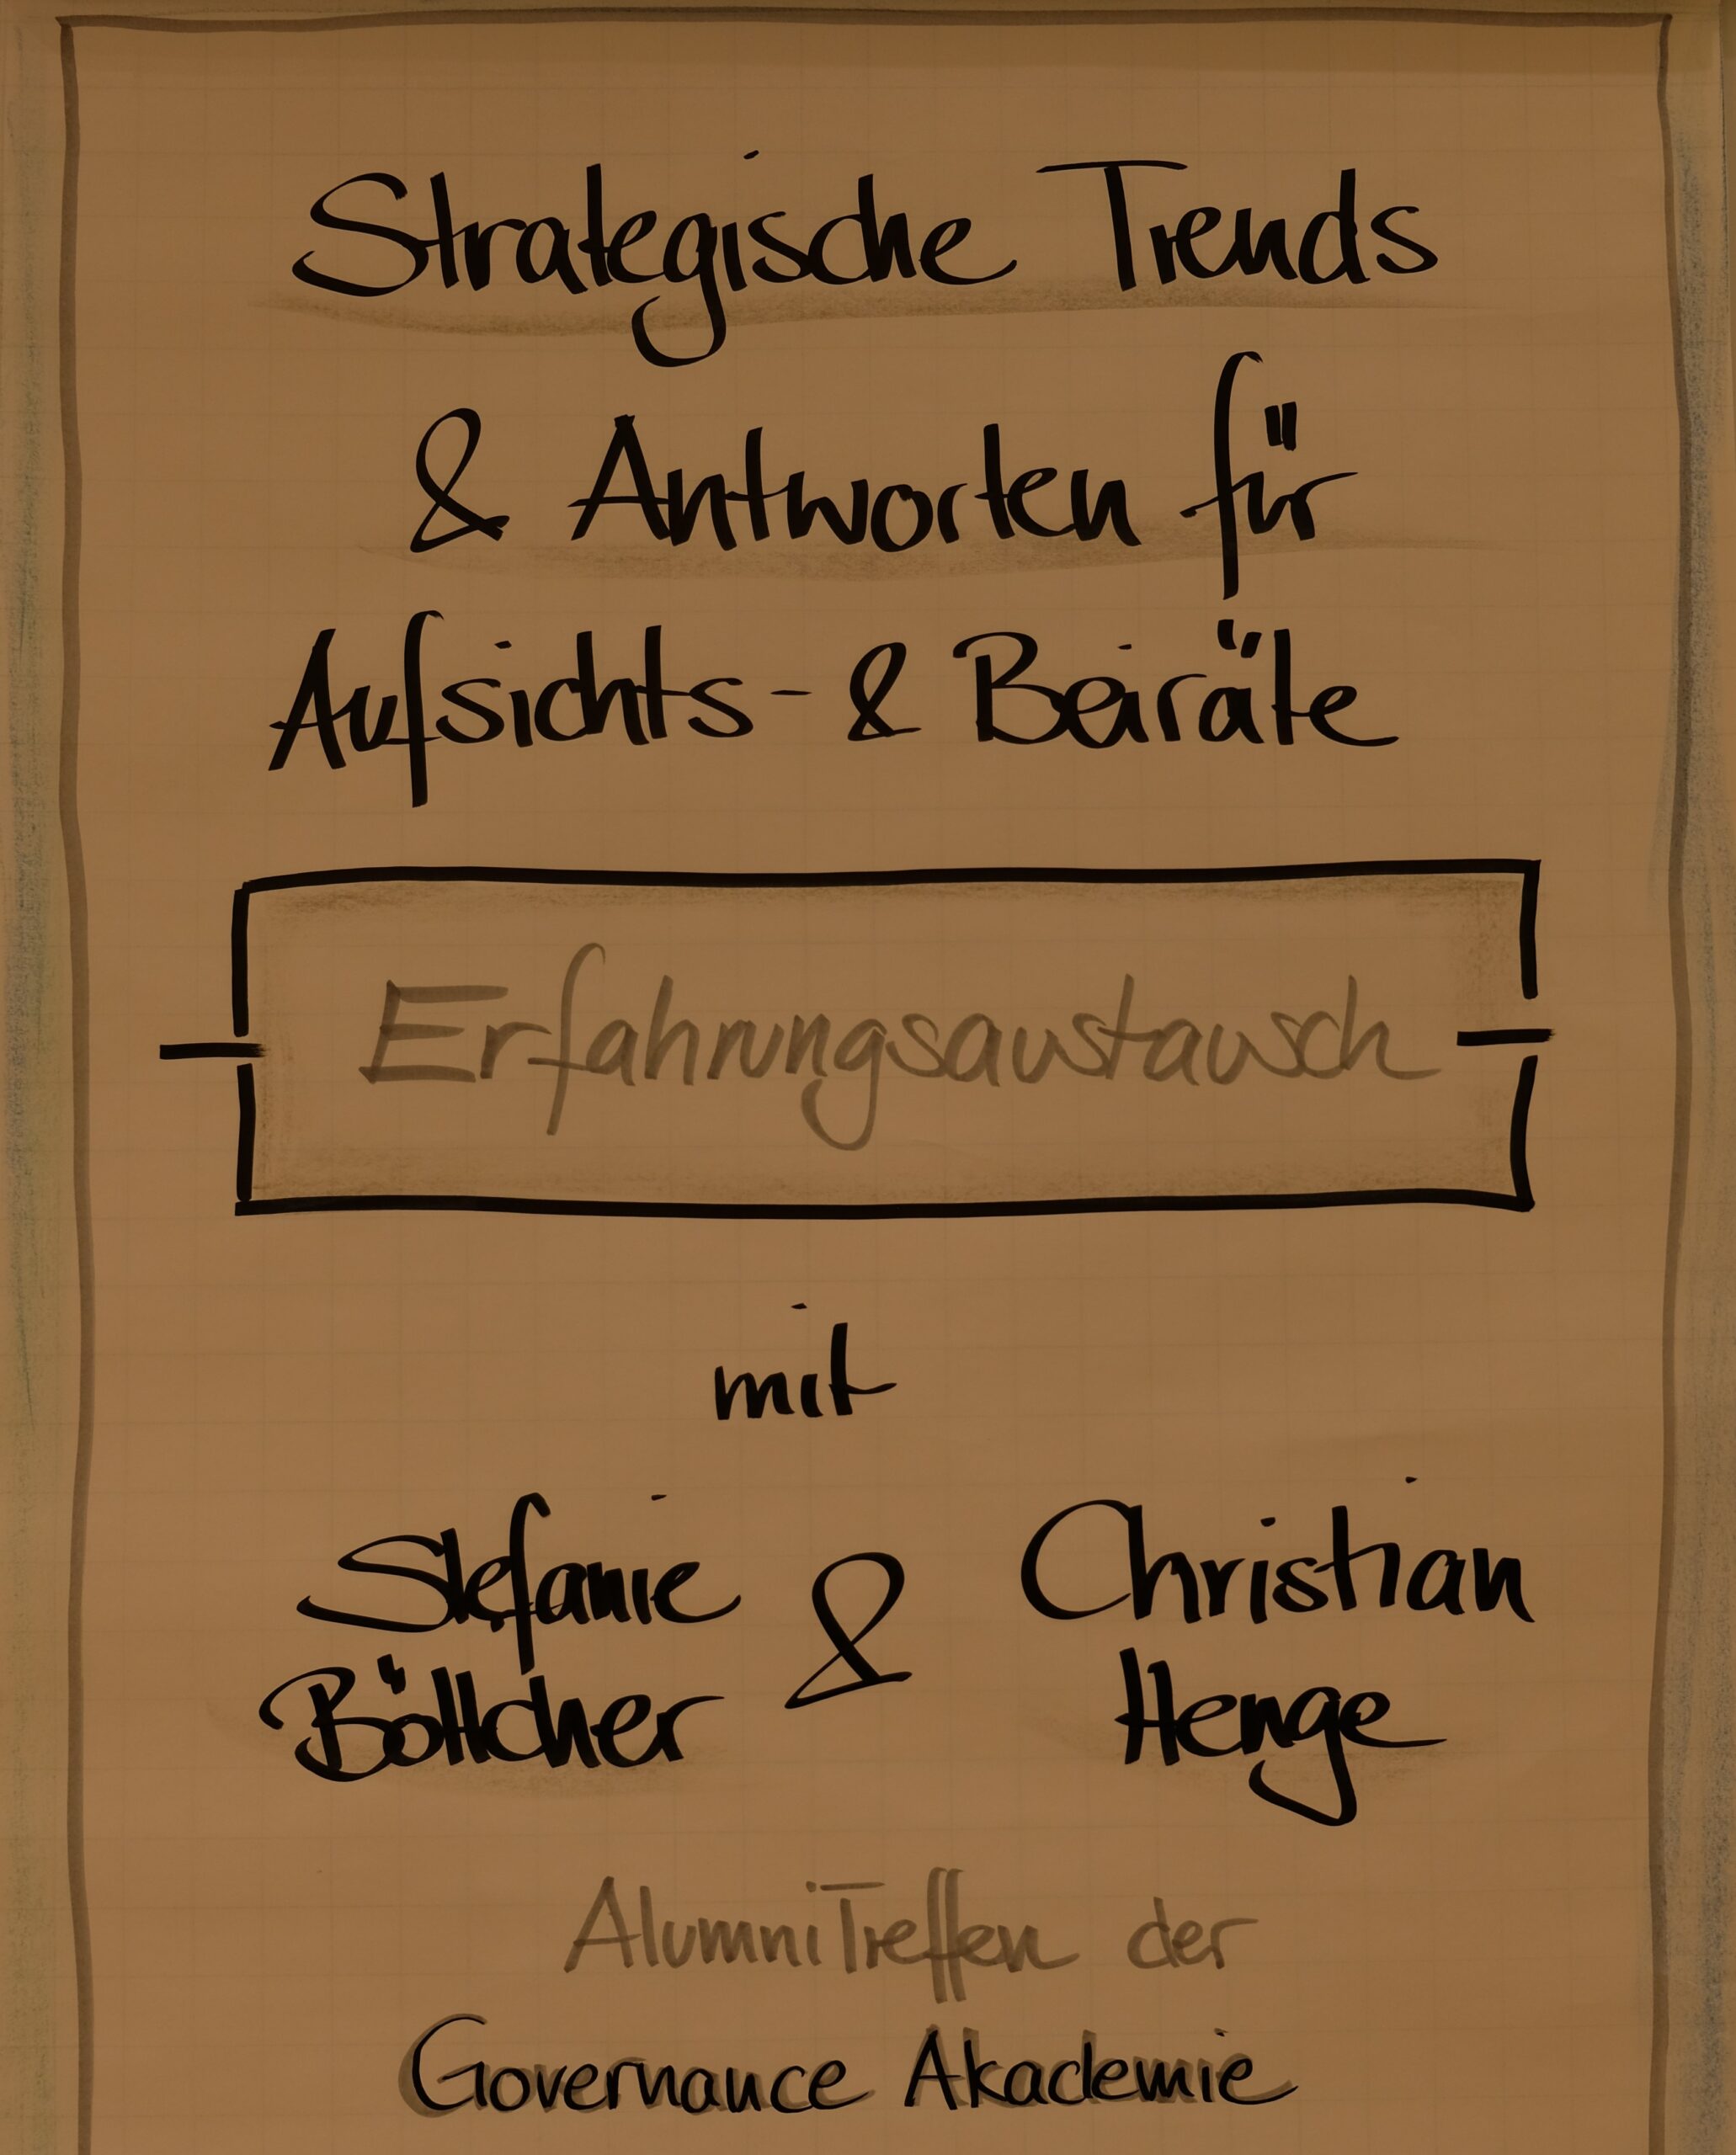 Strategische Trends
& Antworten für
Aufsichts- & Beiräte
Erfahrungsaustausch
mit
Stefanie & Christian
Böttcher Henge
AlumniTreffen der
Governance Akademie